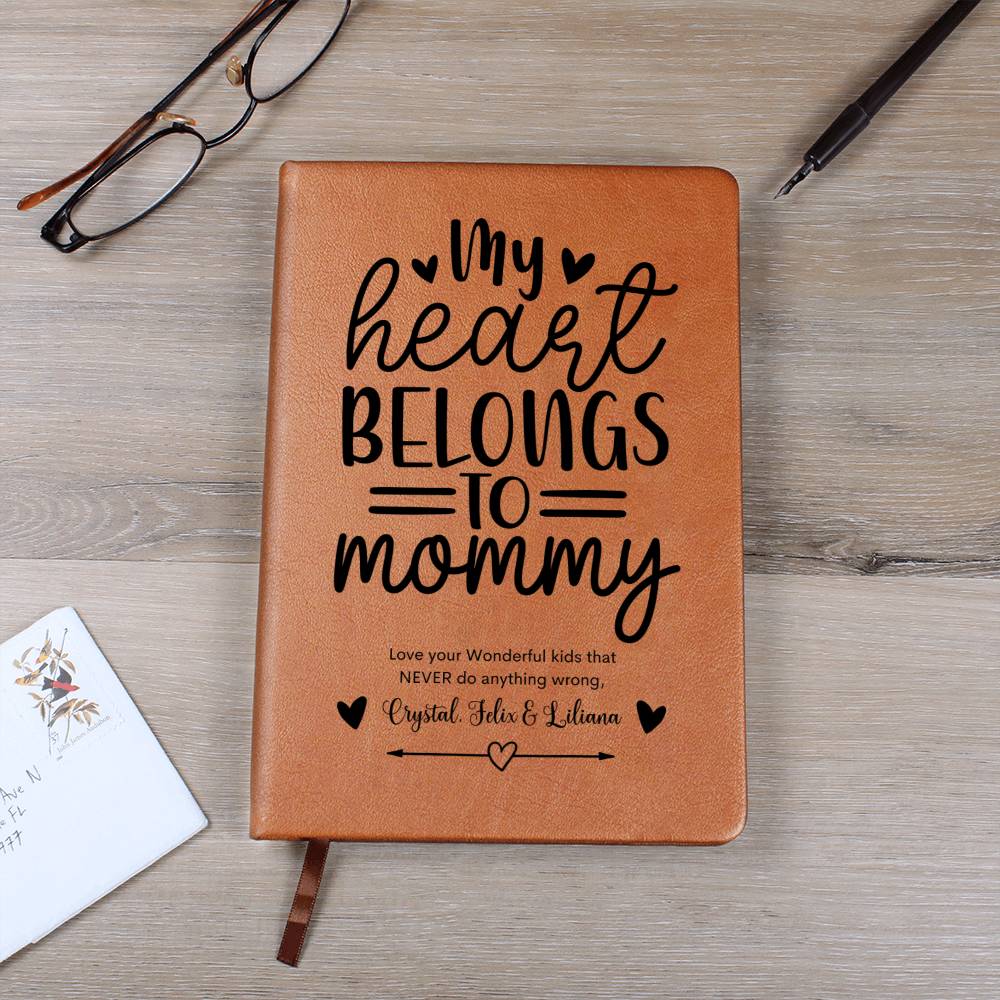 My
heart
BELONGS
TO
mommy
Love your Wonderful kids that
NEVER do anything wrong,
Crystal, Felix & Liliana
John James Audubon
37
Ave N
FL
977